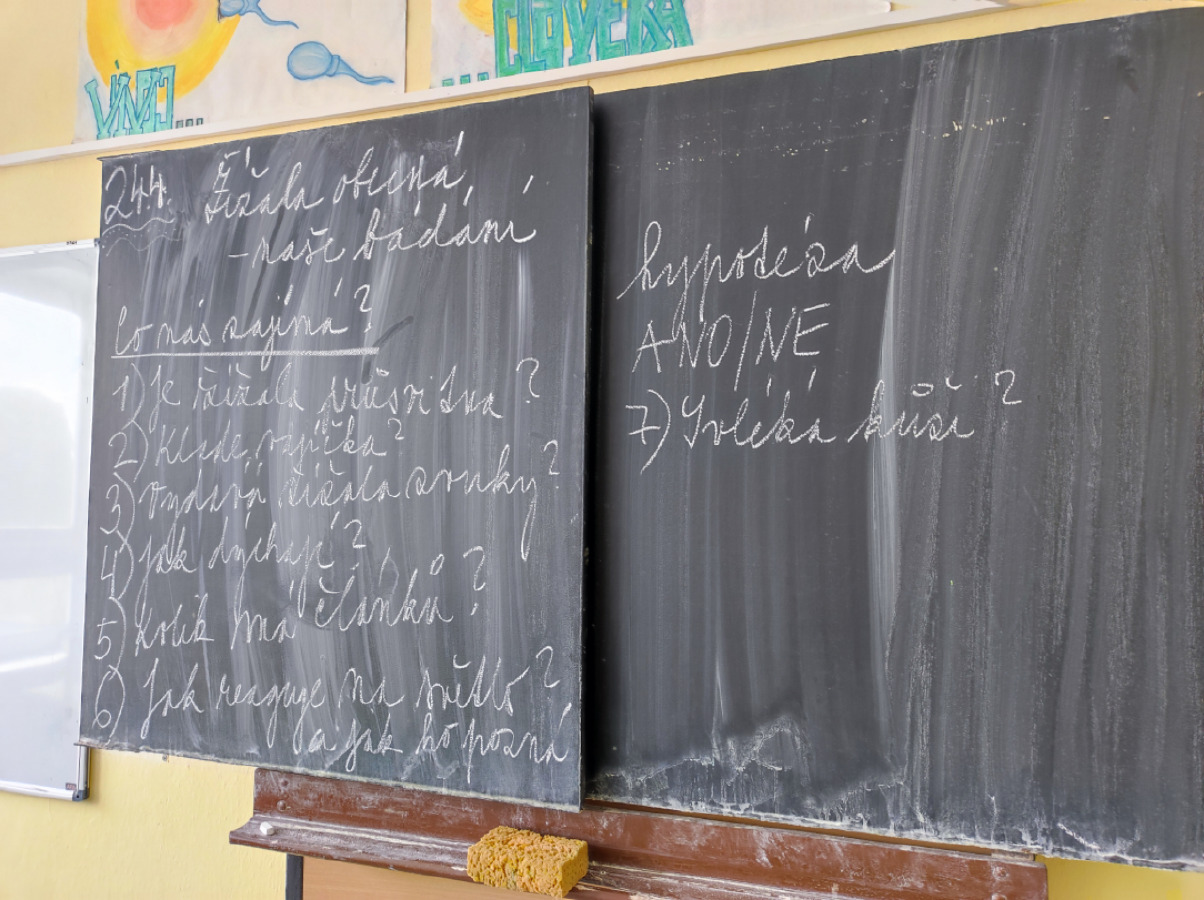 VÝVOJ...
...ČLOVĚKA
24.4. Žížala obecná,
- naše bádání
Co nás zajímá?
1) Je žížala průsvitná?
2) Klade vajíčka?
3) Vydává žížala zvuky?
4) Jak dýchají?
5) Kolik má článků?
6) Jak reaguje na světlo?
a jak ho pozná
hypotéza
ANO/NE
7) Svléká kůži?